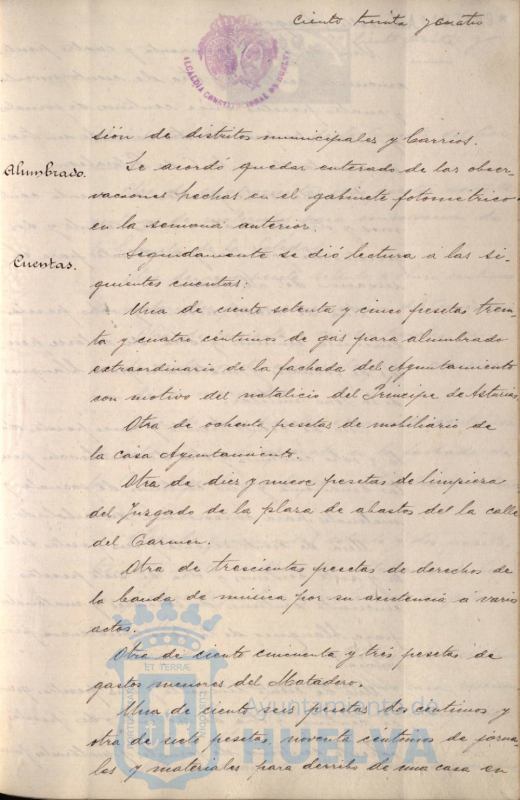 Ciento treinta y cuatro
ALCALDIA CONSTITUCIONAL DE HUELVA
sión de distritos municipales y barrios.
Alumbrado.
Se acordó quedar enterado de las obser-
vaciones hechas en el gabinete fotométrico
en la semana anterior.
Cuentas.
Seguidamente se dió lectura á las si-
guientes cuentas:
Una de ciento setenta y cinco pesetas trein-
ta y cuatro céntimos de gas para alumbrado
extraordinario de la fachada del Ayuntamiento
con motivo del natalicio del Príncipe de Asturias
Otra de ochenta pesetas de mobiliario de
la casa Ayuntamiento.
Otra de diez y nueve pesetas de limpieza
del Juzgado de la plaza de abastos de la calle
del Carmen.
Otra de trescientas pesetas de derechos de
la banda de música por su asistencia á varios
actos.
Otra de ciento cincuenta y tres pesetas de
gastos menores del Matadero.
Una de ciento seis pesetas dos céntimos y
otra de siete pesetas, noventa céntimos de jorna-
les y materiales para derribo de una casa en
ET TERRÆ
Ayuntamiento de
HUELVA